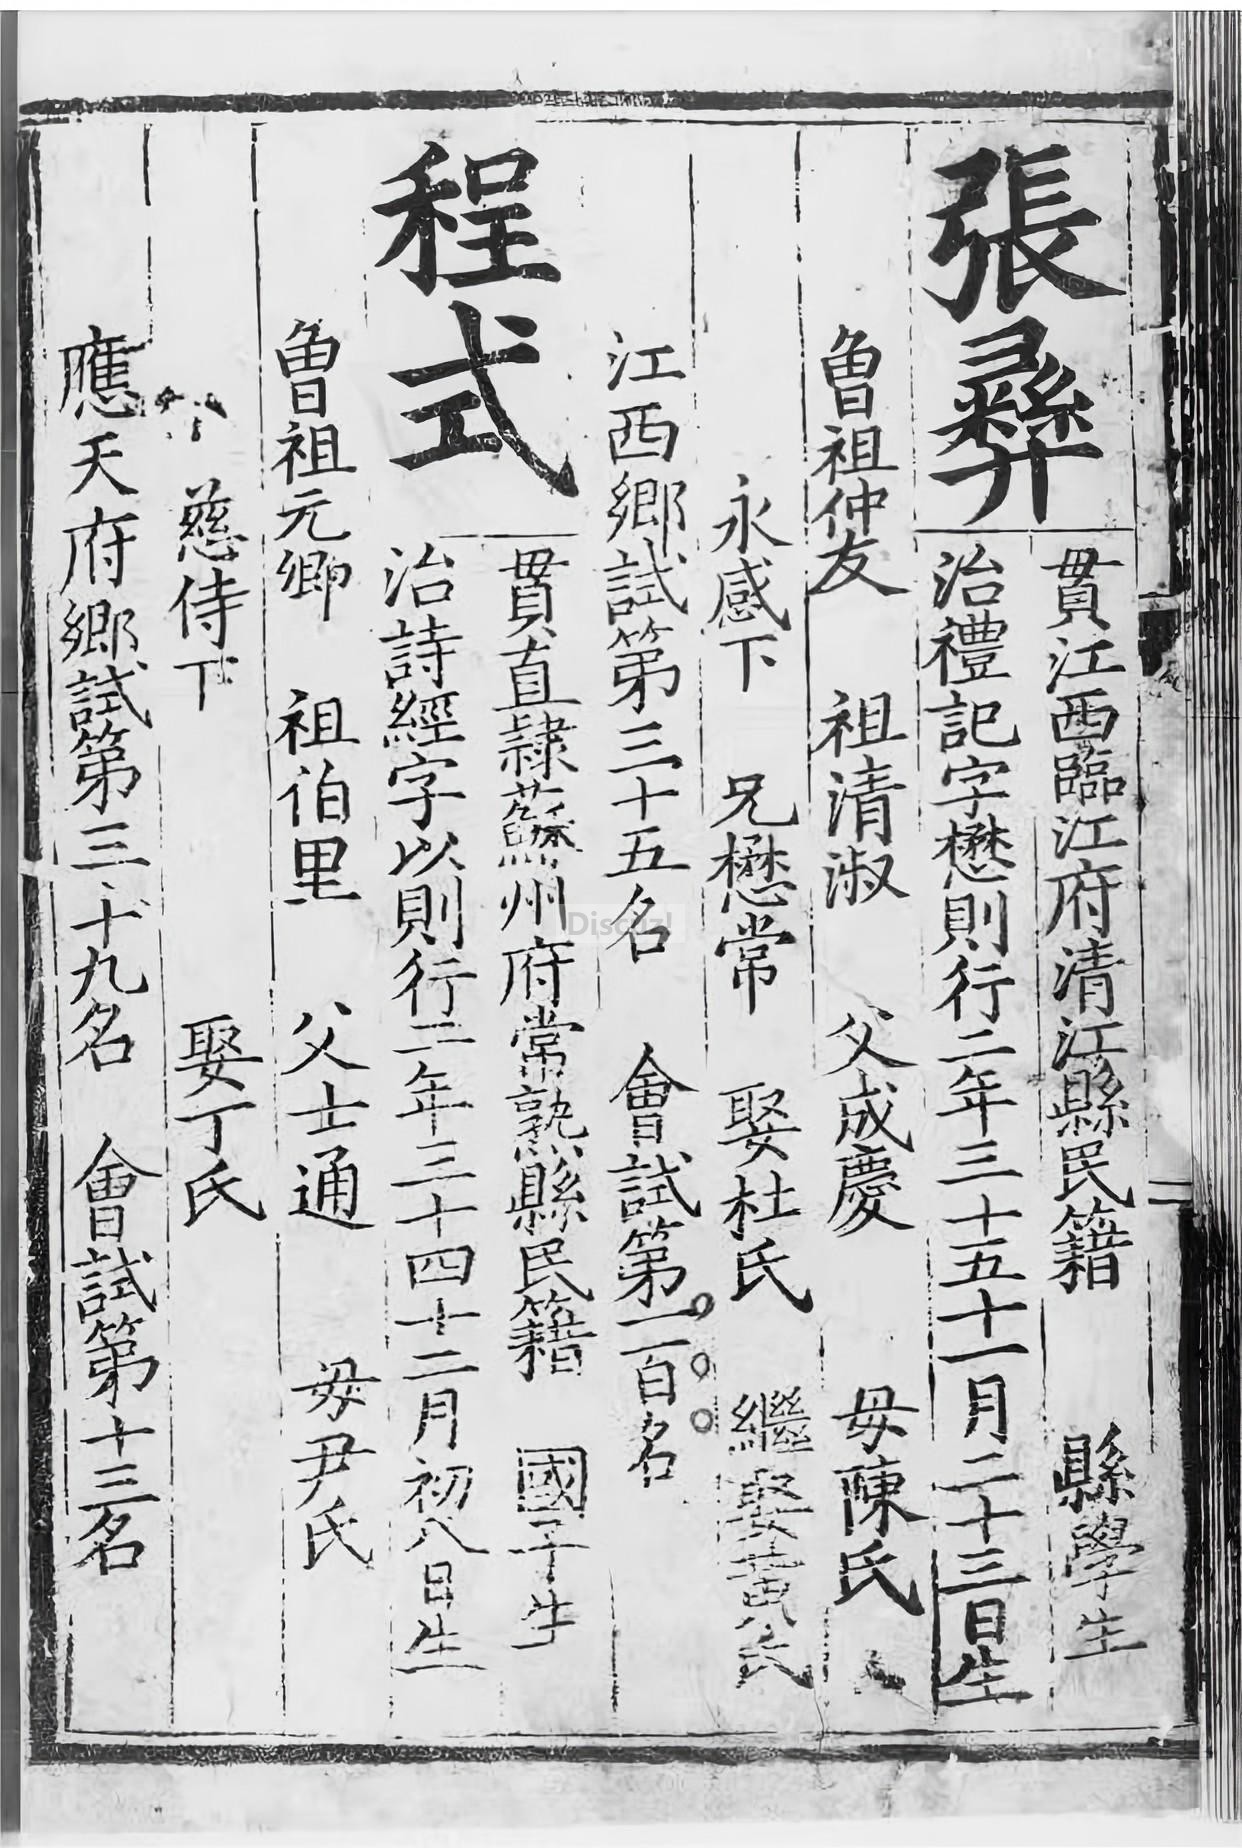 張彝
貫江西臨江府清江縣民籍 縣學生
治禮記字懋則行二年三十五十一月二十三日生
曾祖仲友 祖清淑 父成慶 母陳氏
永感下 兄懋常 娶杜氏 繼娶黃氏
江西鄉試第三十五名 會試第一百名
程式
貫直隸蘇州府常熟縣民籍 國子生
治詩經字以則行二年三十四十二月初八日生
曾祖元卿 祖伯里 父士通 母尹氏
慈侍下 娶丁氏
應天府鄉試第三十九名 會試第十三名
Discuz!